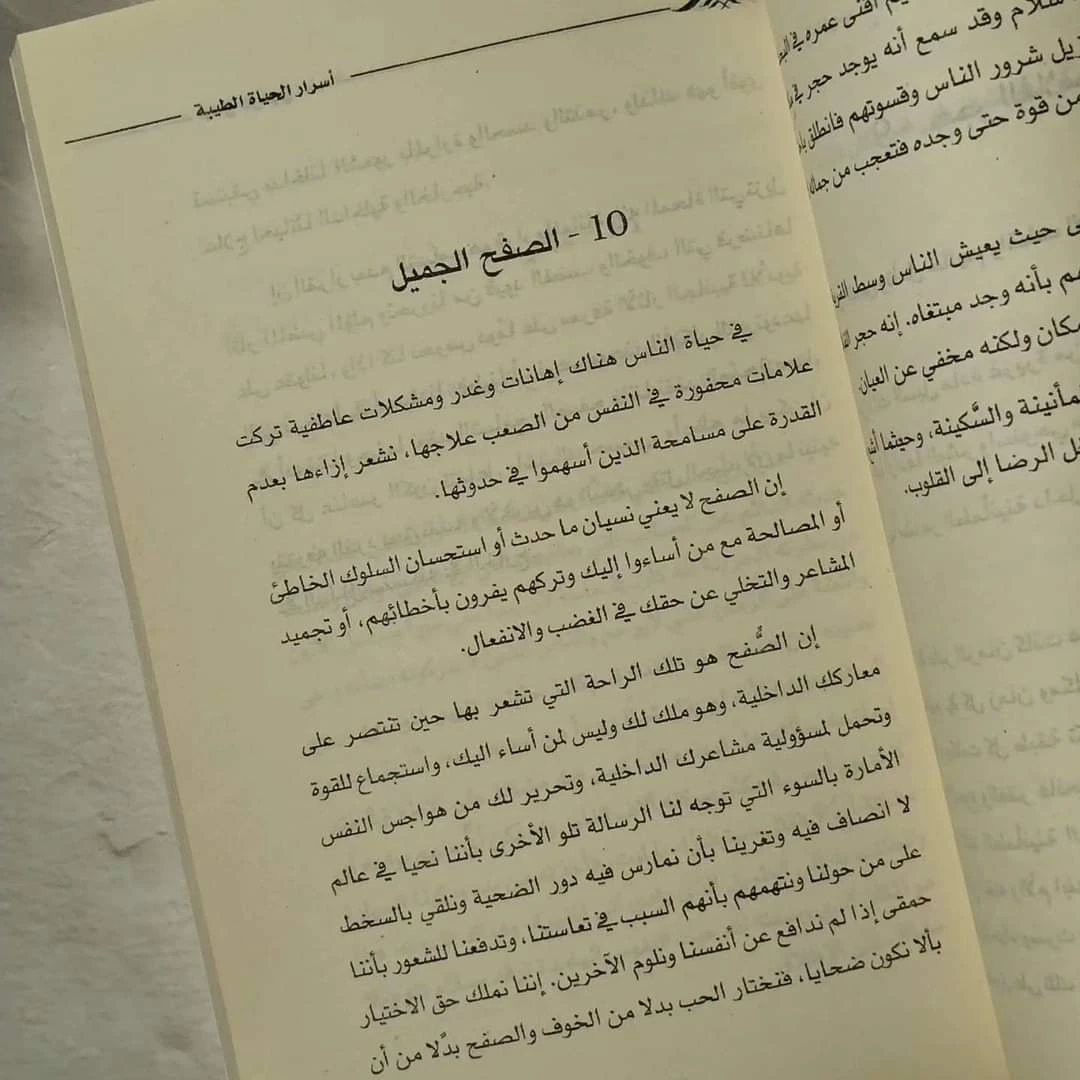 أسرار الحياة الطيبة
10 - الصفح الجميل
في حياة الناس هناك إهانات وغدر ومشكلات عاطفية تركت
علامات محفورة في النفس من الصعب علاجها، نشعر إزاءها بعدم
القدرة على مسامحة الذين أسهموا في حدوثها.
إن الصفح لا يعني نسيان ما حدث أو استحسان السلوك الخاطئ
أو المصالحة مع من أساءوا إليك وتركهم يفرون بأخطائهم، أو تجميد
المشاعر والتخلي عن حقك في الغضب والانفعال.
إن الصُّفح هو تلك الراحة التي تشعر بها حين تنتصر على
معاركك الداخلية، وهو ملك لك وليس لمن أساء اليك، واستجماع للقوة
وتحمل لمسؤولية مشاعرك الداخلية، وتحرير لك من هواجس النفس
الأمارة بالسوء التي توجه لنا الرسالة تلو الأخرى بأننا نحيا في عالم
لا انصاف فيه وتغرينا بأن نمارس فيه دور الضحية ونلقي بالسخط
على من حولنا ونتهمهم بأنهم السبب في تعاستنا، وتدفعنا للشعور بأننا
حمقى إذا لم ندافع عن أنفسنا ونلوم الآخرين. إننا نملك حق الاختيار
بألا نكون ضحايا، فنختار الحب بدلا من الخوف والصفح بدًلا من أن
أفنى عمره في
وقد سمع أنه يوجد حجر في
شرور الناس وقسوتهم فانطلق
من قوة حتى وجده فتعجب من
حيث يعيش الناس وسط
بأنه وجد مبتغاه. إنه حجر
ولكنه مخفي عن العيان
والسَّكينة، وحيثما
الرضا إلى القلوب.